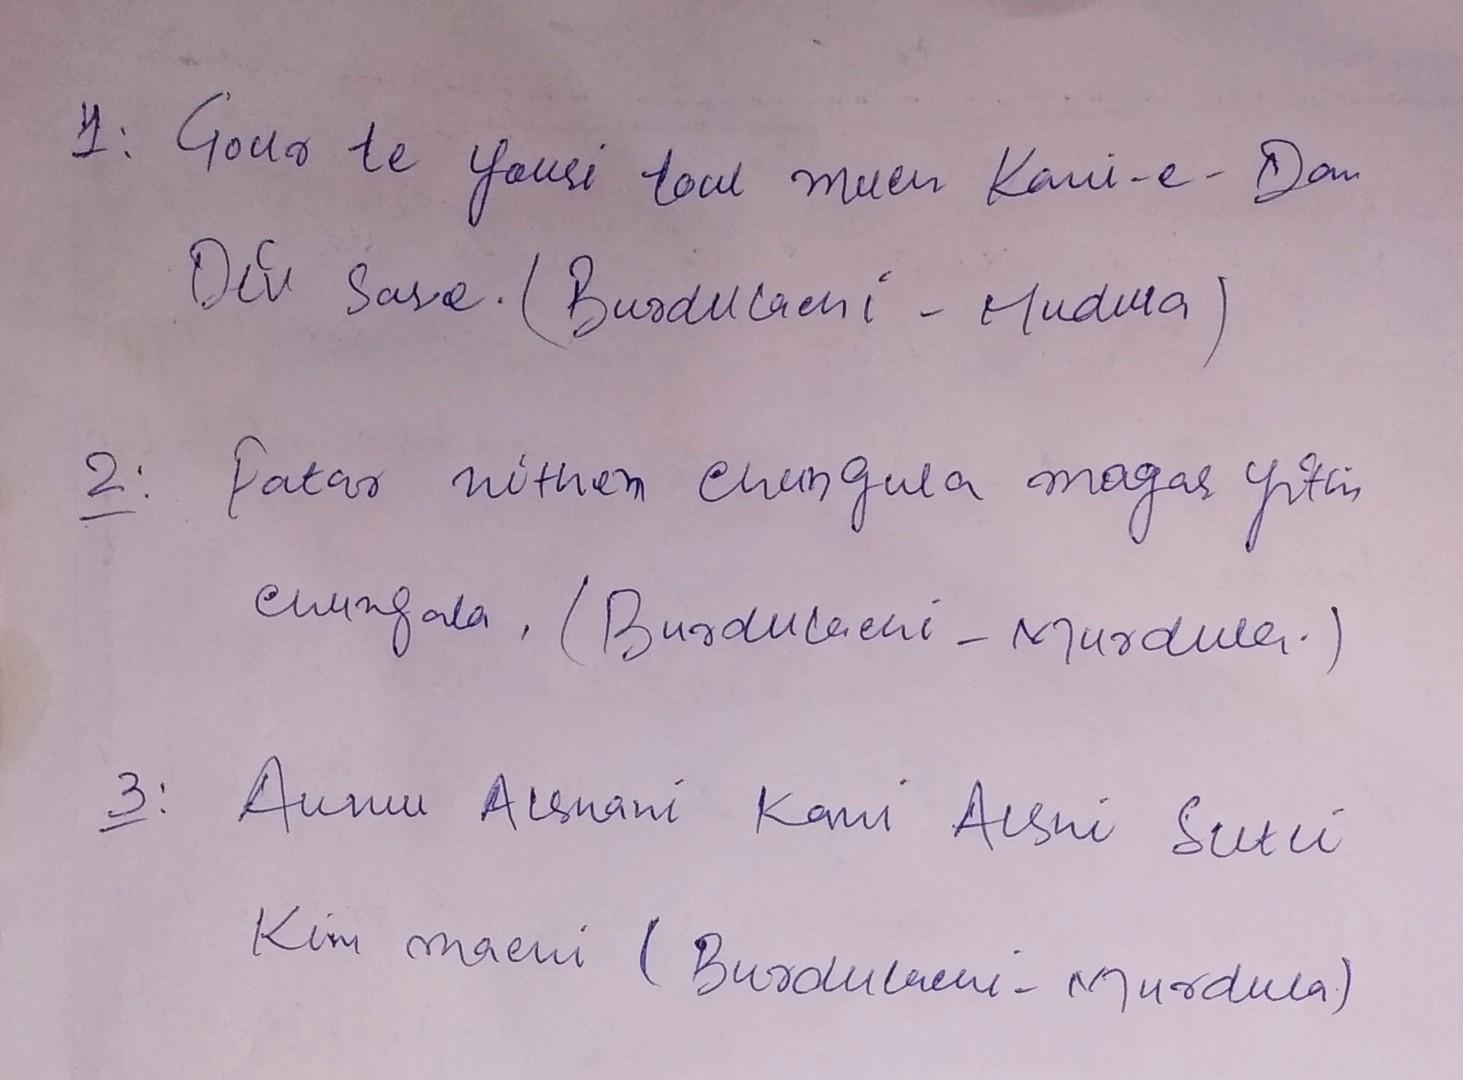 1: Gour te yousi toul much Kani-e-Dan
Div Sara. (Burdulachi - Mudula)
2: Patar nithen Chungula magar yitin
chungala. (Burdulachi - Murdula.)
3: Aunu Alsnani Kani Alsni Sutui
Kim machi (Burdulachi - Murdula)